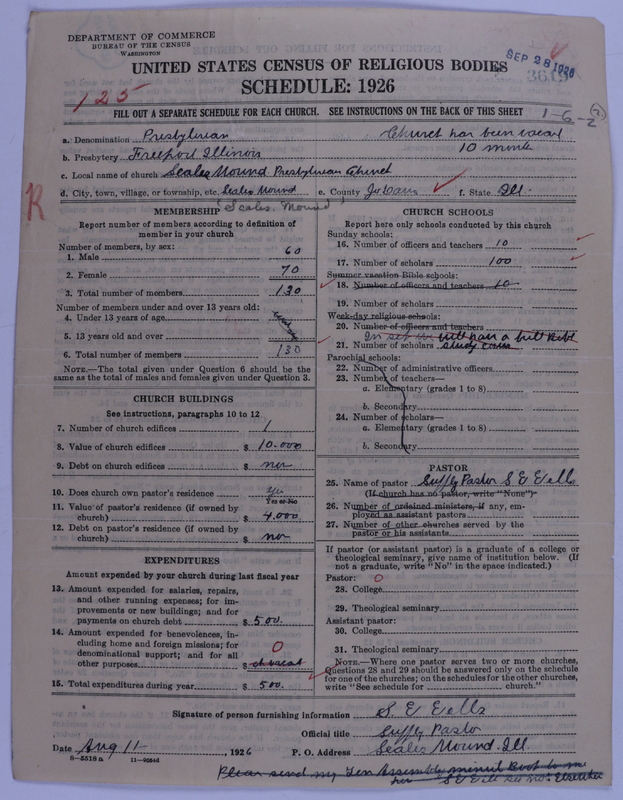 DEPARTMENT OF COMMERCE
BUREAU OF THE CENSUS
WASHINGTON
SEP 28 1926
3619
UNITED STATES CENSUS OF RELIGIOUS BODIES
SCHEDULE: 1926
125
FILL OUT A SEPARATE SCHEDULE FOR EACH CHURCH. SEE INSTRUCTIONS ON THE BACK OF THIS SHEET
1-6-2
a. Denomination Presbyterian Church has been vacant
b. Presbytery Freeport Illinois 10 months
c. Local name of church Scales Mound Presbyterian Church
d. City, town, village, or township, etc. Scales Mound e. County Jo Daviess f. State Ill.
R
(Scales Mound)
MEMBERSHIP
Report number of members according to definition of member in your church
Number of members, by sex:
1. Male 60
2. Female 70
3. Total number of members 130
Number of members under and over 13 years old:
4. Under 13 years of age
5. 13 years old and over
6. Total number of members 130
NOTE.—The total given under Question 6 should be the same as the total of males and females given under Question 3.
CHURCH BUILDINGS
See instructions, paragraphs 10 to 12
7. Number of church edifices 1
8. Value of church edifices $ 10.000
9. Debt on church edifices $ non
10. Does church own pastor's residence yes
Yes or No
11. Value of pastor's residence (if owned by church) $ 4.000
12. Debt on pastor's residence (if owned by church) $ non
EXPENDITURES
Amount expended by your church during last fiscal year
13. Amount expended for salaries, repairs, and other running expenses; for improvements or new buildings; and for payments on church debt $ 500.
14. Amount expended for benevolences, including home and foreign missions; for denominational support; and for all other purposes 0 $ ch vacat
15. Total expenditures during year $ 500.
CHURCH SCHOOLS
Report here only schools conducted by this church
Sunday schools:
16. Number of officers and teachers 10
17. Number of scholars 100
Summer vacation Bible schools:
18. Number of officers and teachers 10
19. Number of scholars
Week-day religious schools:
20. Number of officers and teachers
21. Number of scholars
Parochial schools:
22. Number of administrative officers
23. Number of teachers—
a. Elementary (grades 1 to 8)
b. Secondary
24. Number of scholars—
a. Elementary (grades 1 to 8)
b. Secondary
PASTOR
25. Name of pastor Supply Pastor S E Eells
(If church has no pastor, write "None")
26. Number of ordained ministers, if any, employed as assistant pastors
27. Number of other churches served by the pastor or his assistants
If pastor (or assistant pastor) is a graduate of a college or theological seminary, give name of institution below. (If not a graduate, write "No" in the space indicated.)
Pastor: 0
28. College
29. Theological seminary
Assistant pastor:
30. College
31. Theological seminary
NOTE.—Where one pastor serves two or more churches, Questions 28 and 29 should be answered only on the schedule for one of the churches; on the schedules for the other churches, write "See schedule for church."
Signature of person furnishing information S E Eells
Official title Supply Pastor
Date Aug 11, 1926 P. O. Address Scales Mound. Ill.
8—5518a 11—9064d
Please send my Gen Assembly minut Book to me